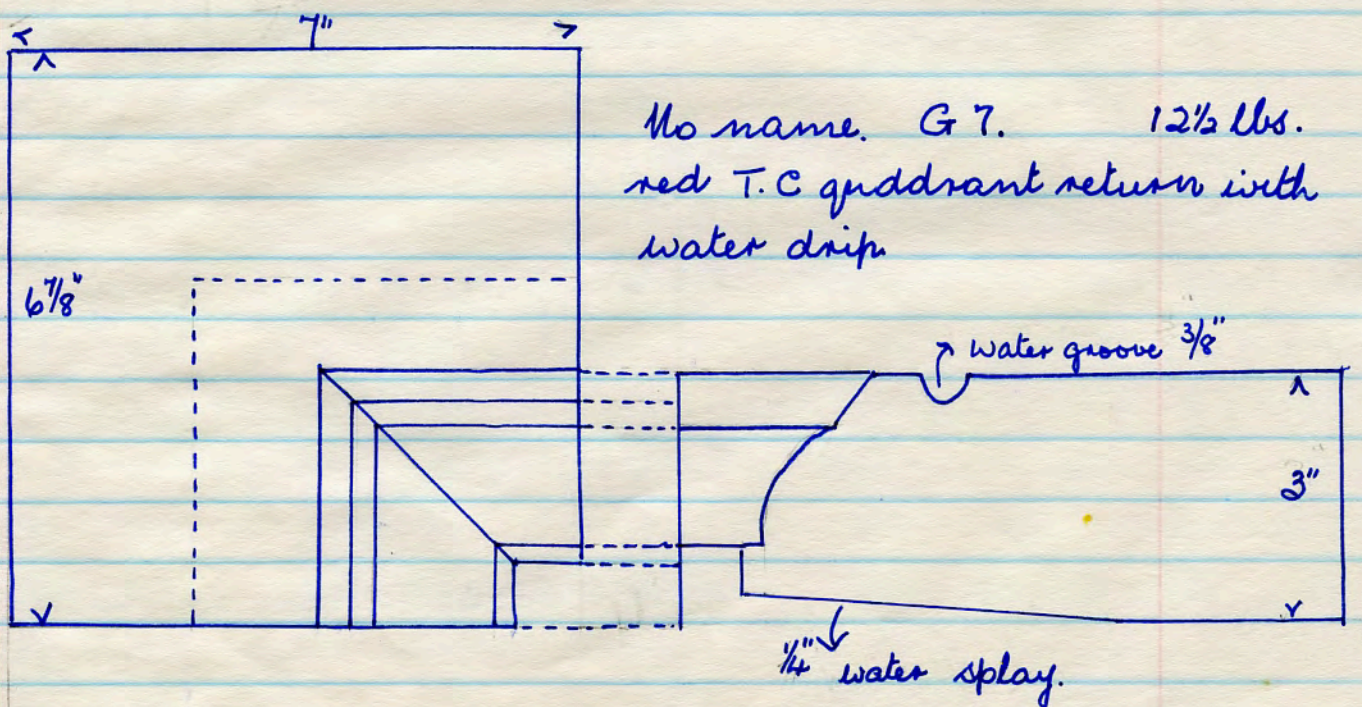 7"
No name. G 7. 12½ lbs.
red T.C quddrant return with
water drip
6⅞"
water groove ⅜"
3"
¼" water splay.